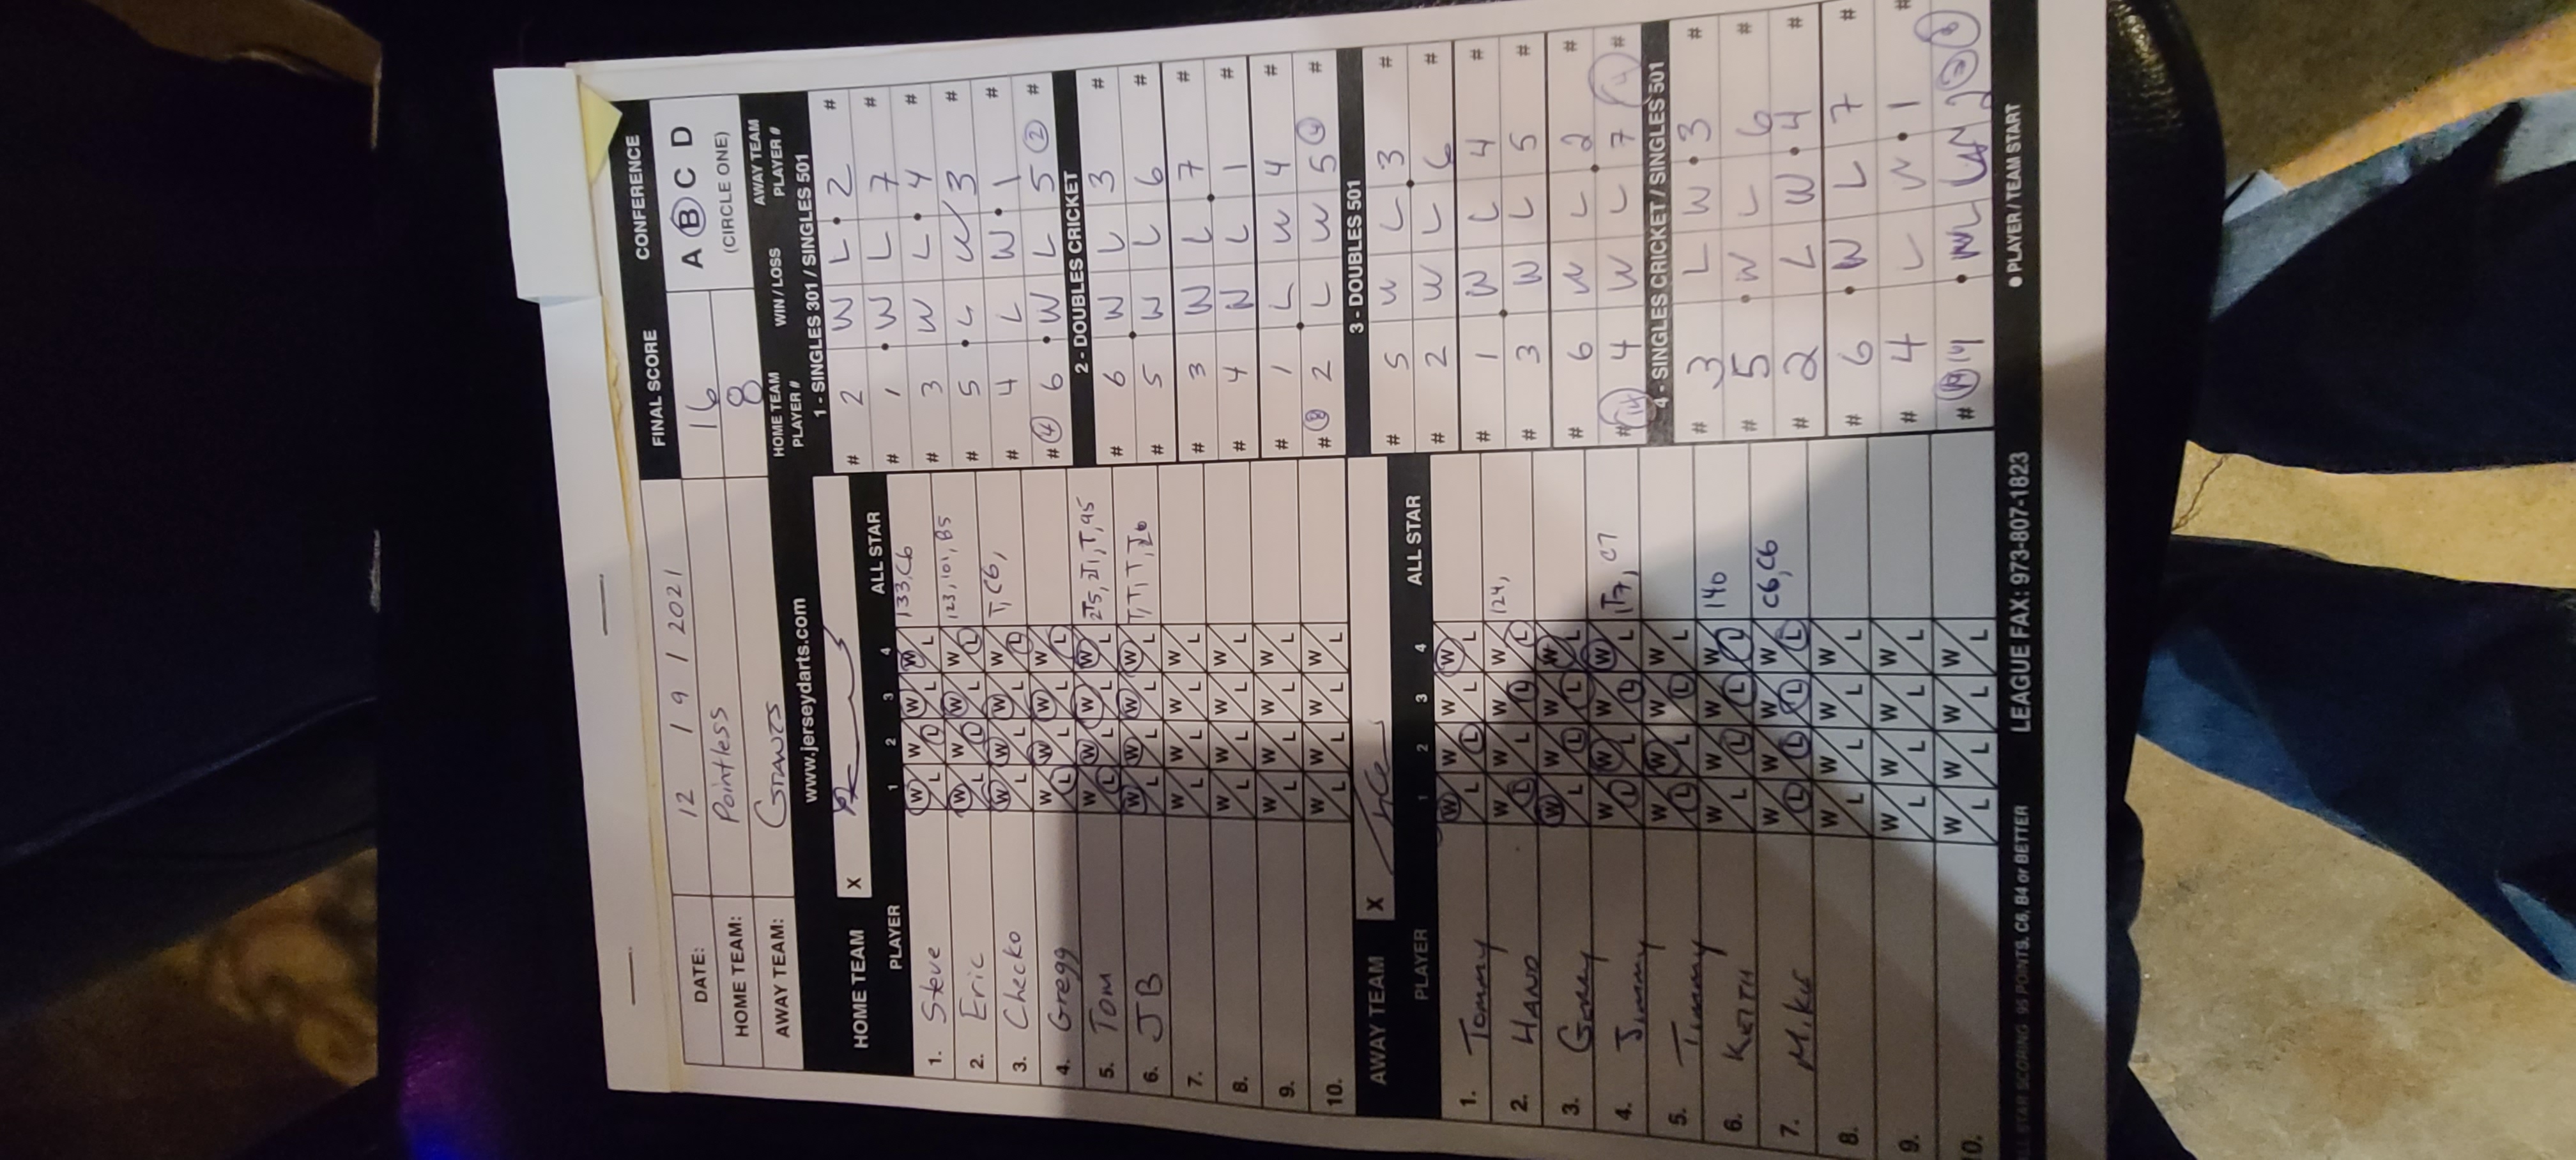 DATE: 12 / 9 / 2021
FINAL SCORE CONFERENCE
HOME TEAM: Pointless 16 A B C D
AWAY TEAM: GIANTS 8 (CIRCLE ONE)
www.jerseydarts.com
HOME TEAM PLAYER # WIN / LOSS AWAY TEAM PLAYER #
HOME TEAM X
PLAYER 1 2 3 4 ALL STAR
1. Steve W L W L W L W L 133, C6
2. Eric W L W L W L W L 123, 101, B5
3. Checko W L W L W L W L T, C6,
4. Gregg W L W L W L W L
5. Tom W L W L W L W L 2T5, 2T1, T, 95
6. JB W L W L W L W L T, T, T, T26
7. W L W L W L W L
8. W L W L W L W L
9. W L W L W L W L
10. W L W L W L W L
AWAY TEAM X
PLAYER 1 2 3 4 ALL STAR
1. Tommy W L W L W L W L
2. HAND W L W L W L W L 124,
3. Gerry W L W L W L W L
4. Jimmy W L W L W L W L 1T7, C7
5. Timmy W L W L W L W L
6. KEITH W L W L W L W L 140
7. Mike W L W L W L W L C6, C6
8. W L W L W L W L
9. W L W L W L W L
10. W L W L W L W L
1 - SINGLES 301 / SINGLES 501
# 2 W L • 2 #
# 1 • W L 7 #
# 3 W L • 4 #
# 5 • L W 3 #
# 4 L W • 1 #
# 4 6 • W L 5 2 #
2 - DOUBLES CRICKET
# 6 W L 3 #
# 5 • W L 6 #
# 3 W L 7 #
# 4 W L • 1 #
# 1 L W 4 #
# 8 2 • L W 5 4 #
3 - DOUBLES 501
# 5 W L 3 #
# 2 W L • 6 #
# 1 W L 4 #
# 3 • W L 5 #
# 6 W L 2 #
# 14 4 W L • 7 4 #
4 - SINGLES CRICKET / SINGLES 501
# 3 L W • 3 #
# 5 • W L 6 #
# 2 L W • 4 #
# 6 • W L 7 #
# 4 L W • 1 #
• PLAYER / TEAM START
ALL STAR SCORING 95 POINTS, C6, B4 or BETTER LEAGUE FAX: 973-807-1823